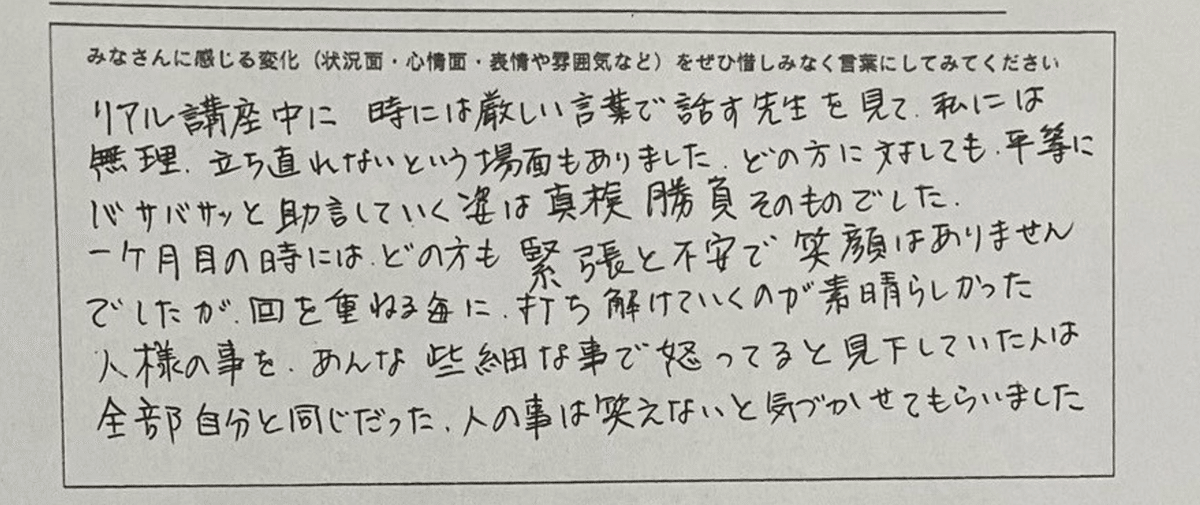 みなさんに感じる変化（状況面・心情面・表情や雰囲気など）をぜひ惜しみなく言葉にしてみてください
リアル講座中に 時には厳しい言葉で話す先生を見て、私には
無理、立ち直れないという場面もありました。どの方に対しても、平等に
バサバサッと助言していく姿は真検勝負そのものでした。
一ケ月目の時には、どの方も緊張と不安で笑顔はありません
でしたが、回を重ねる毎に、打ち解けていくのが素晴らしかった
人様の事を、あんな些細な事で怒ってると見下していた人は
全部自分と同じだった、人の事は笑えないと気づかせてもらいました